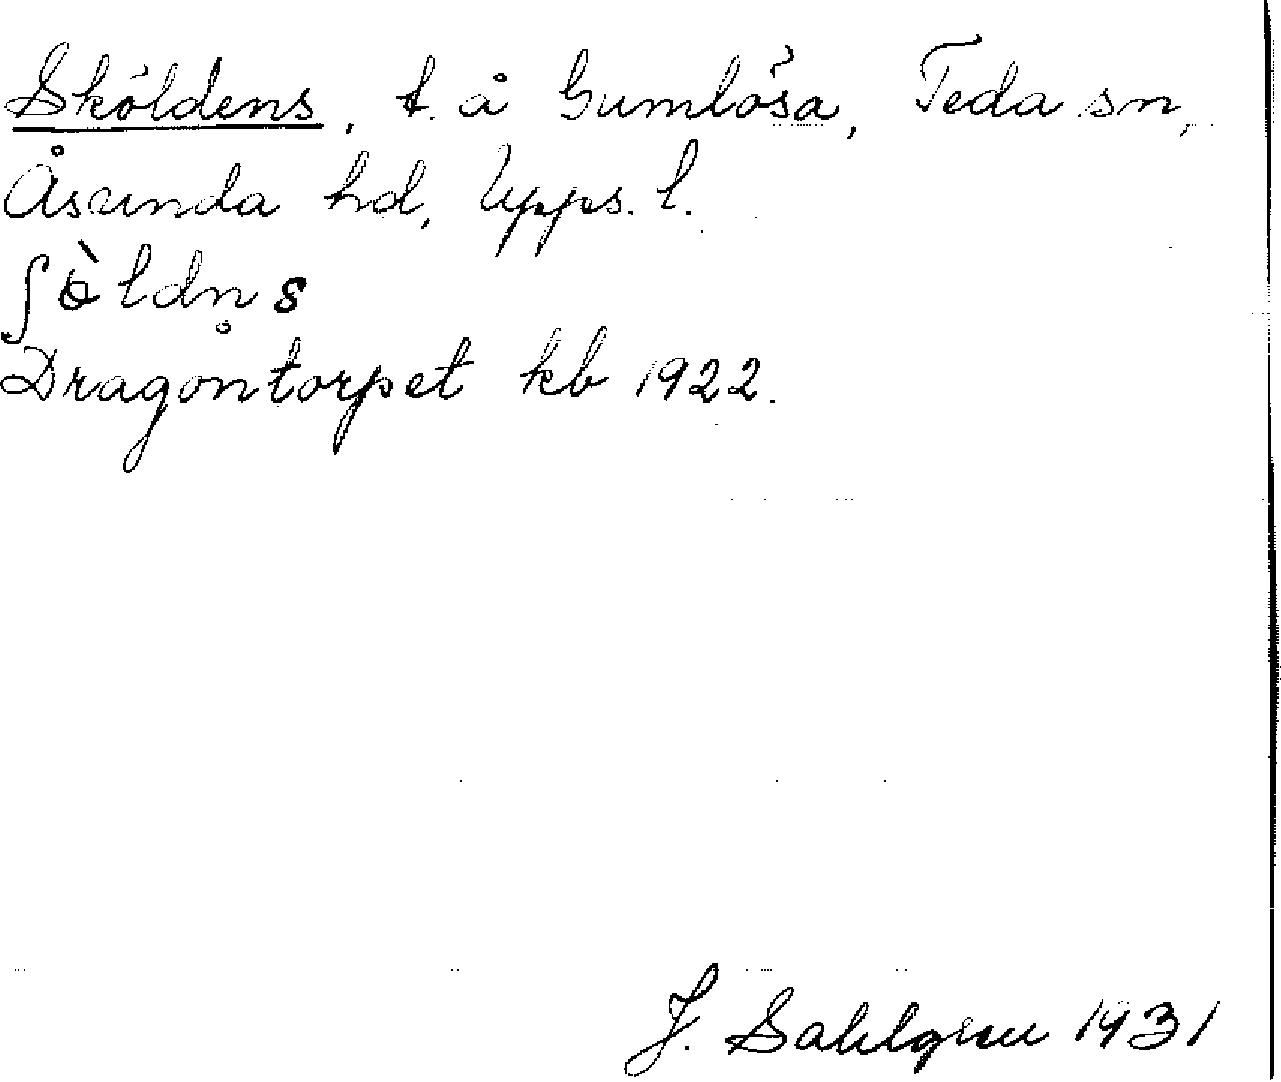 Sköldens, t. å Gumlösa, Teda sn,
Åsunda hd, Upps. l.
ʃɵ̀ldn̥s
Dragontorpet kb 1922.
J. Sahlgren 1931